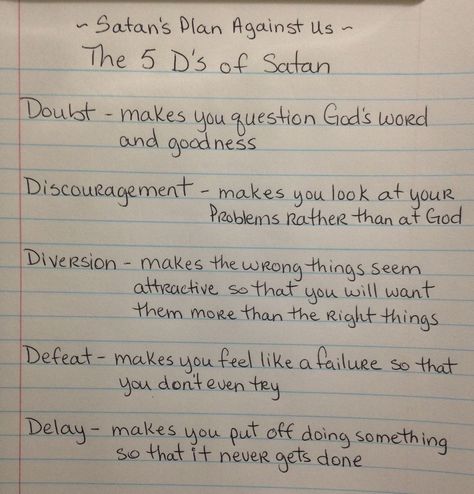 ~ Satan's Plan Against Us ~
The 5 D's of Satan
Doubt - makes you question God's word
and goodness
Discouragement - makes you look at your
Problems rather than at God
Diversion - makes the wrong things seem
attractive so that you will want
them more than the right things
Defeat - makes you feel like a failure so that
you don't even try
Delay - makes you put off doing something
so that it never gets done